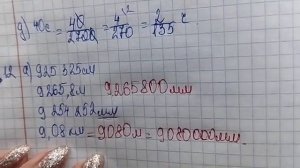 g) 40с. = 40/2700 = 4/270 = 2/135 с
12 a) 925 325см
9265,8м 9265800мм
9 254 252мм
9,08км = 9080м = 9080000мм